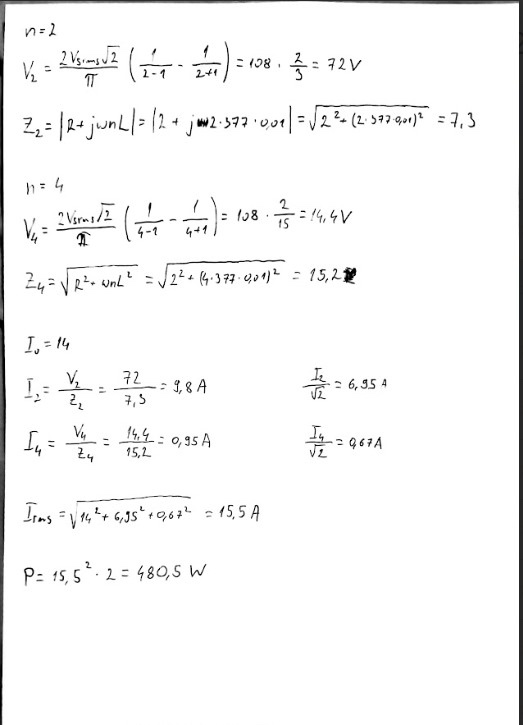 n=2
V₂ = 2Vsrms√2/π (1/(2-1) - 1/(2+1)) = 108 · 2/3 = 72V
Z₂ = |R+jωnL| = |2 + jω2·377·0,01| = √(2²+(2·377·0,01)²) = 7,3
n=4
V₄ = 2Vsrms√2/π (1/(4-1) - 1/(4+1)) = 108 · 2/15 = 14,4V
Z₄ = √(R²+ωnL²) = √(2²+(4·377·0,01)²) = 15,2
I₀ = 14
I₂ = V₂/Z₂ = 72/7,3 = 9,8 A I₂/√2 = 6,95 A
I₄ = V₄/Z₄ = 14,4/15,2 = 0,95 A I₄/√2 = 0,67A
Irms = √(14²+6,95²+0,67²) = 15,5 A
P = 15,5² · 2 = 480,5 W